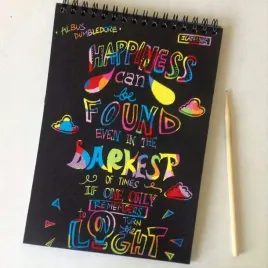 • ALBUS DUMBLEDORE •
HAPPINESS
can
be
FOUND
EVEN IN THE
DARKEST
OF TIMES
IF ONE ONLY
REMEMBERS
to TURN
ON the
LIGHT